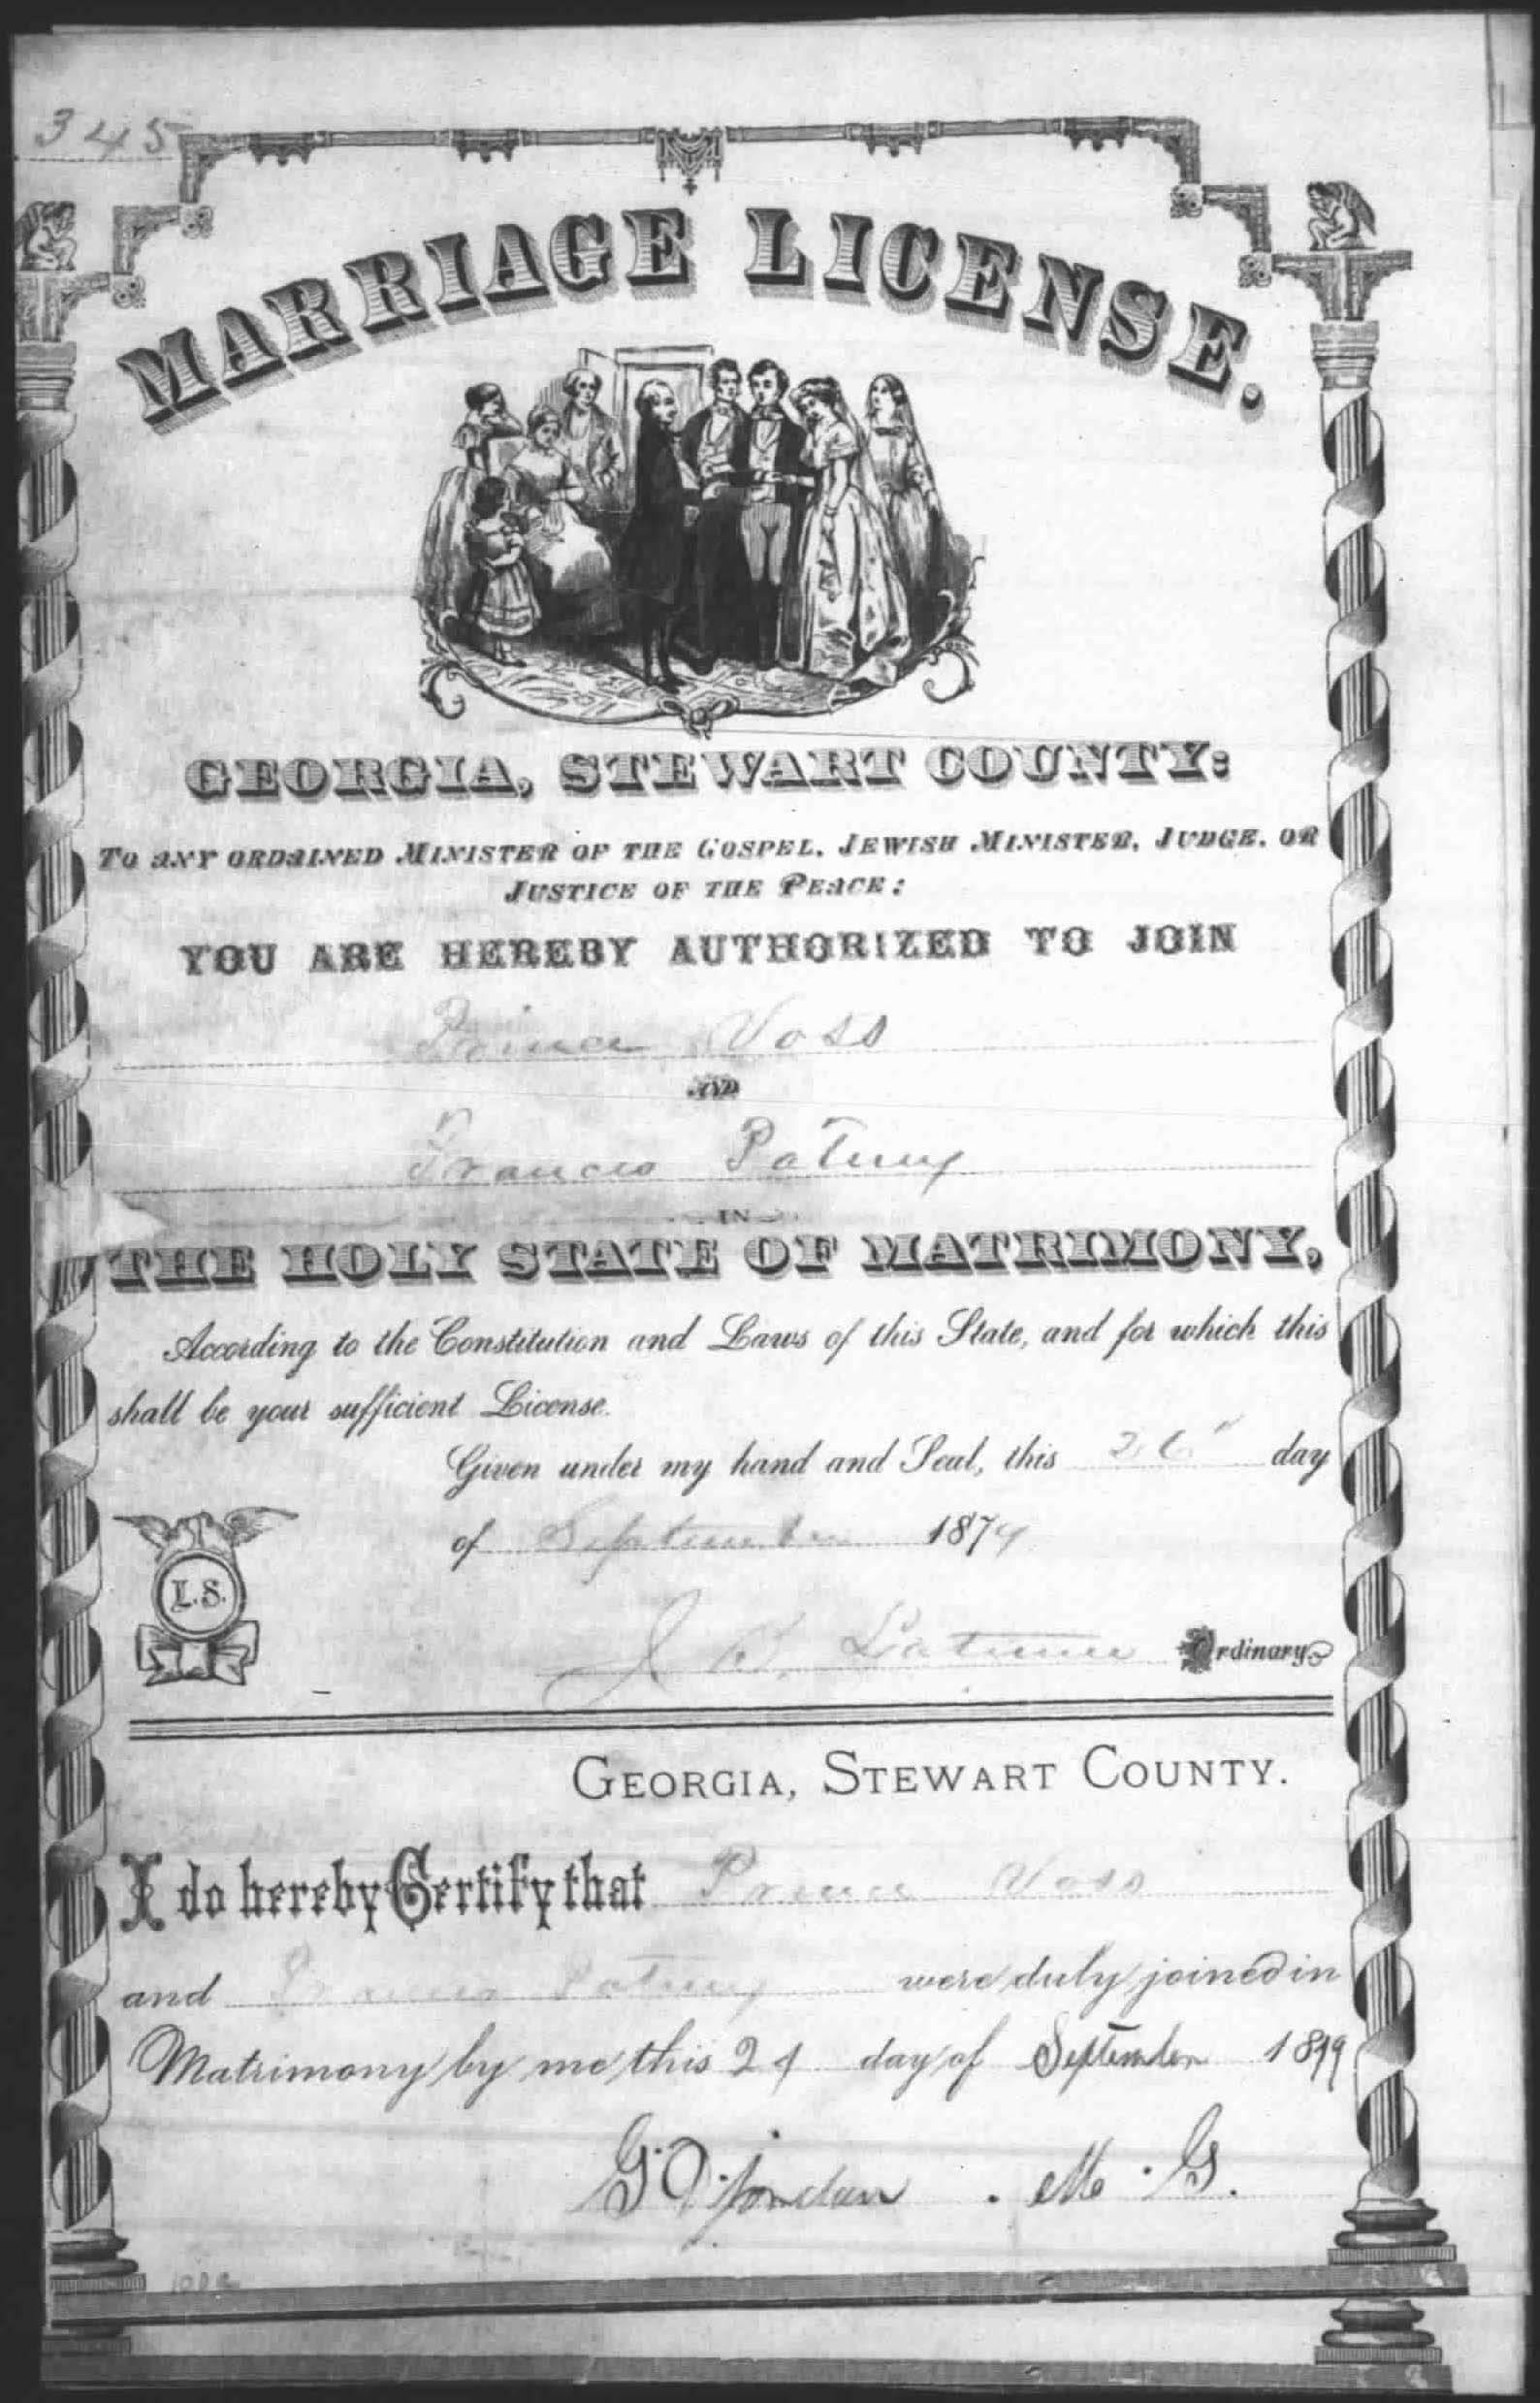 345
MARRIAGE LICENSE.
GEORGIA, STEWART COUNTY:
TO ANY ORDAINED MINISTER OF THE GOSPEL, JEWISH MINISTER, JUDGE, OR
JUSTICE OF THE PEACE:
YOU ARE HEREBY AUTHORIZED TO JOIN
Prince Voss
AND
Francis
IN
THE HOLY STATE OF MATRIMONY,
According to the Constitution and Laws of this State, and for which this
shall be your sufficient License.
Given under my hand and Seal, this day
of September 1879
L.S.
J Latimer Ordinary
GEORGIA, STEWART COUNTY.
I do hereby Certify that Prince Voss
and Francis were duly joined in
Matrimony by me this day of September 1879
Jordan . M. G.